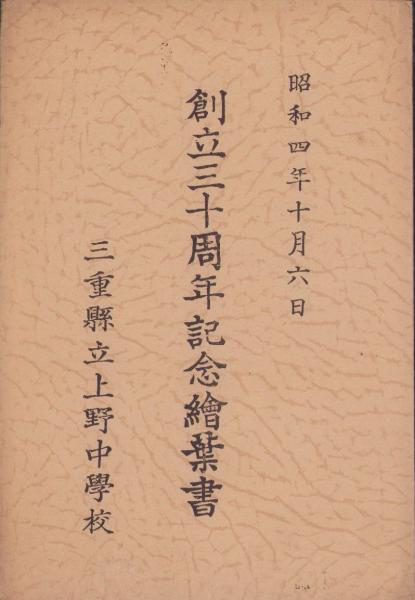 昭和四年十月六日
創立三十周年記念繪葉書
三重縣立上野中學校